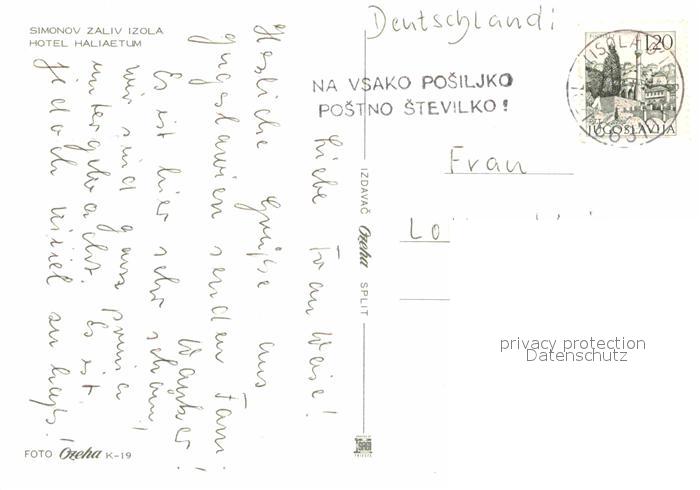 SIMONOV ZALIV IZOLA
HOTEL HALIAETUM
Deutschland!
1,20
JUGOSLAVIJA
NA VSAKO POŠILJKO
POŠTNO ŠTEVILKO!
Frau
Lo
Liebe Frau Weise!
Herzliche Grüsse aus
Jugoslawien senden Fam.
Wanker!
Es ist hier sehr schön!
wir sind ganz prima
untergebracht. Es ist
jedoch viel zu heiß!
IZDAVAČ Ozeha SPLIT
privacy protection
Datenschutz
FOTO Ozeha K-19